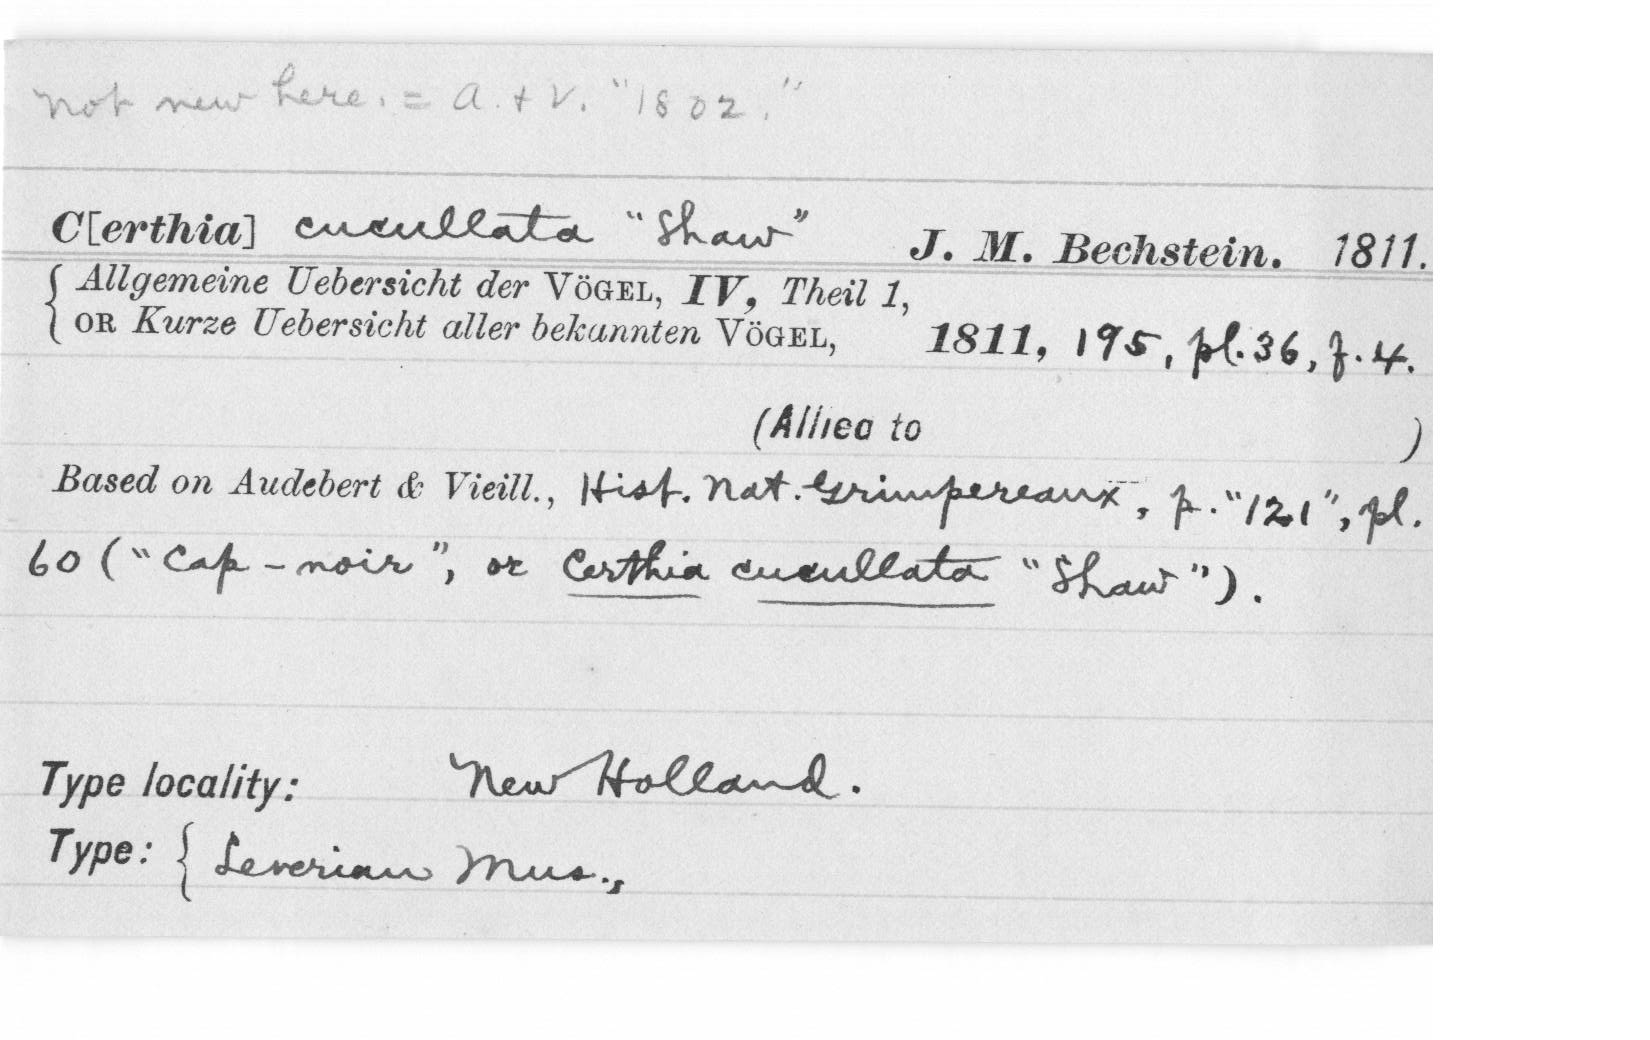 not new here. = A. + V. "1802."
C[erthia] cucullata "Shaw" J. M. Bechstein. 1811.
{ Allgemeine Uebersicht der VÖGEL, IV, Theil 1,
OR Kurze Uebersicht aller bekannten VÖGEL, 1811, 195, pl. 36, f. 4.
(Allied to )
Based on Audebert & Vieill., Hist. Nat. Grimpereaux, p. "121", pl.
60 ("Cap-noir", or Certhia cucullata "Shaw").
Type locality: New Holland.
Type: { Leverian Mus.,